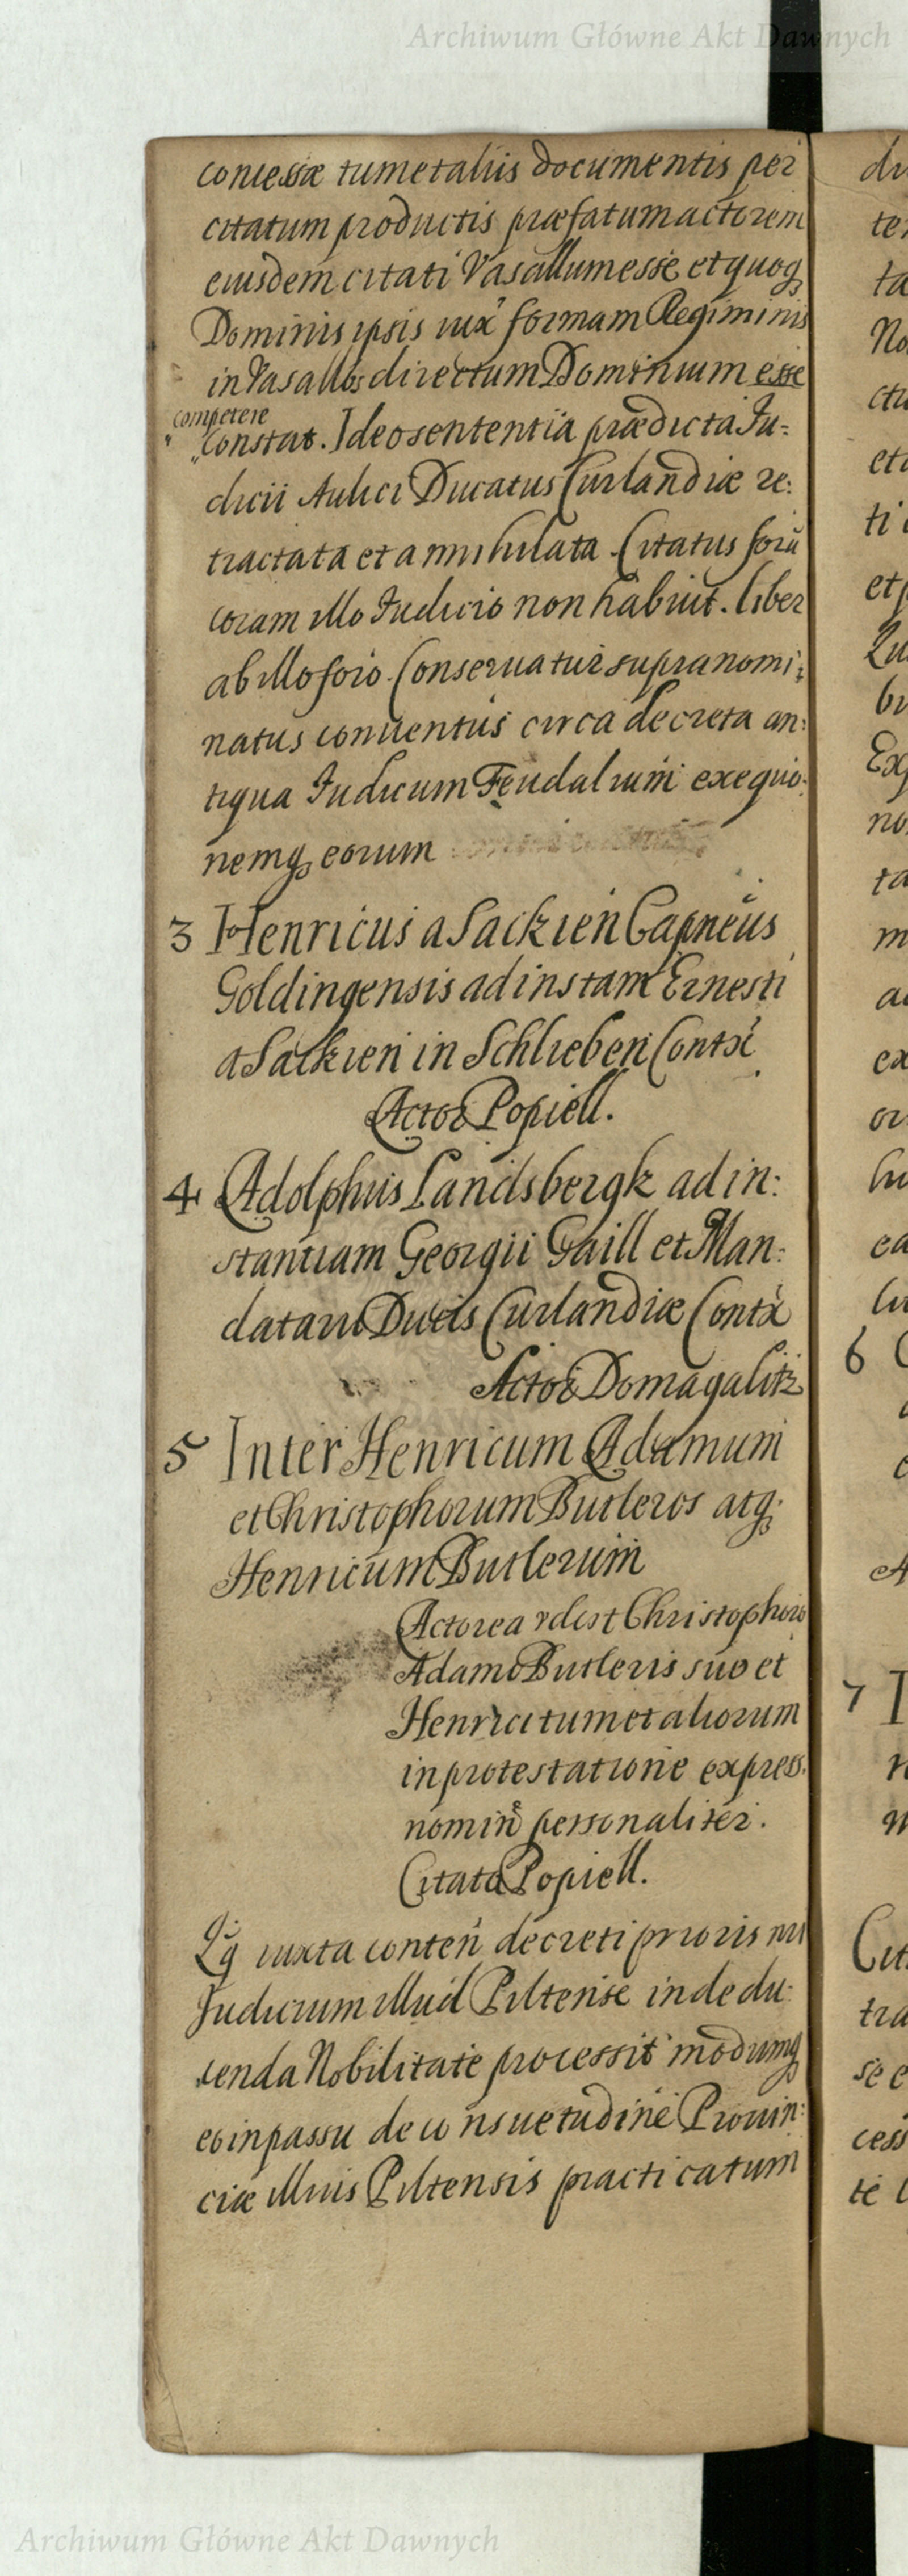 Archiwum Główne Akt Dawnych
concessæ tum et aliis documentis per
citatum productis præfatum actorem
eiusdem citati Vasallum esse et quoq
Dominis ipsis iux formam Regiminis
in Vasallos directum Dominium esse
competere
constat. Ideo sententia prædicta Iu=
dicii Aulici Ducatus Curlandiæ re:
tractata et annihilata Citatus forū
coram illo Iudicio non habuit. liber
ab illo foro Conseruatur supranomi:
natus conuentus circa decreta an:
tiqua Iudicum Feudalium exequio:
nemq eorum
3 Henricus a Sackien Capneus
Goldingensis ad instam Ernesti
a Sackien in Schlieben Contx
Actor Popiell.
4 Adolphus Landsbergk ad in:
stantiam Georgii Gaill et Man:
datarii Ducis Curlandiæ Contx
Actor Domagalitz
5 Inter Henricum Adamum
et Christophorum Butleros atq
Henricum Butlerum
Actorea r dest Christophoro
Adamo Butleris suo et
Henrici tum et aliorum
in protestatione express.
nomin personaliter.
Citata Popiell.
Qq iuxta conten decreti prioris
Iudicium illud Piltense in dedu:
cenda Nobilitate processit modumq
eo in passu de consuetudine Prouin:
ciæ illius Piltensis practicatum
6
7
Archiwum Główne Akt Dawnych